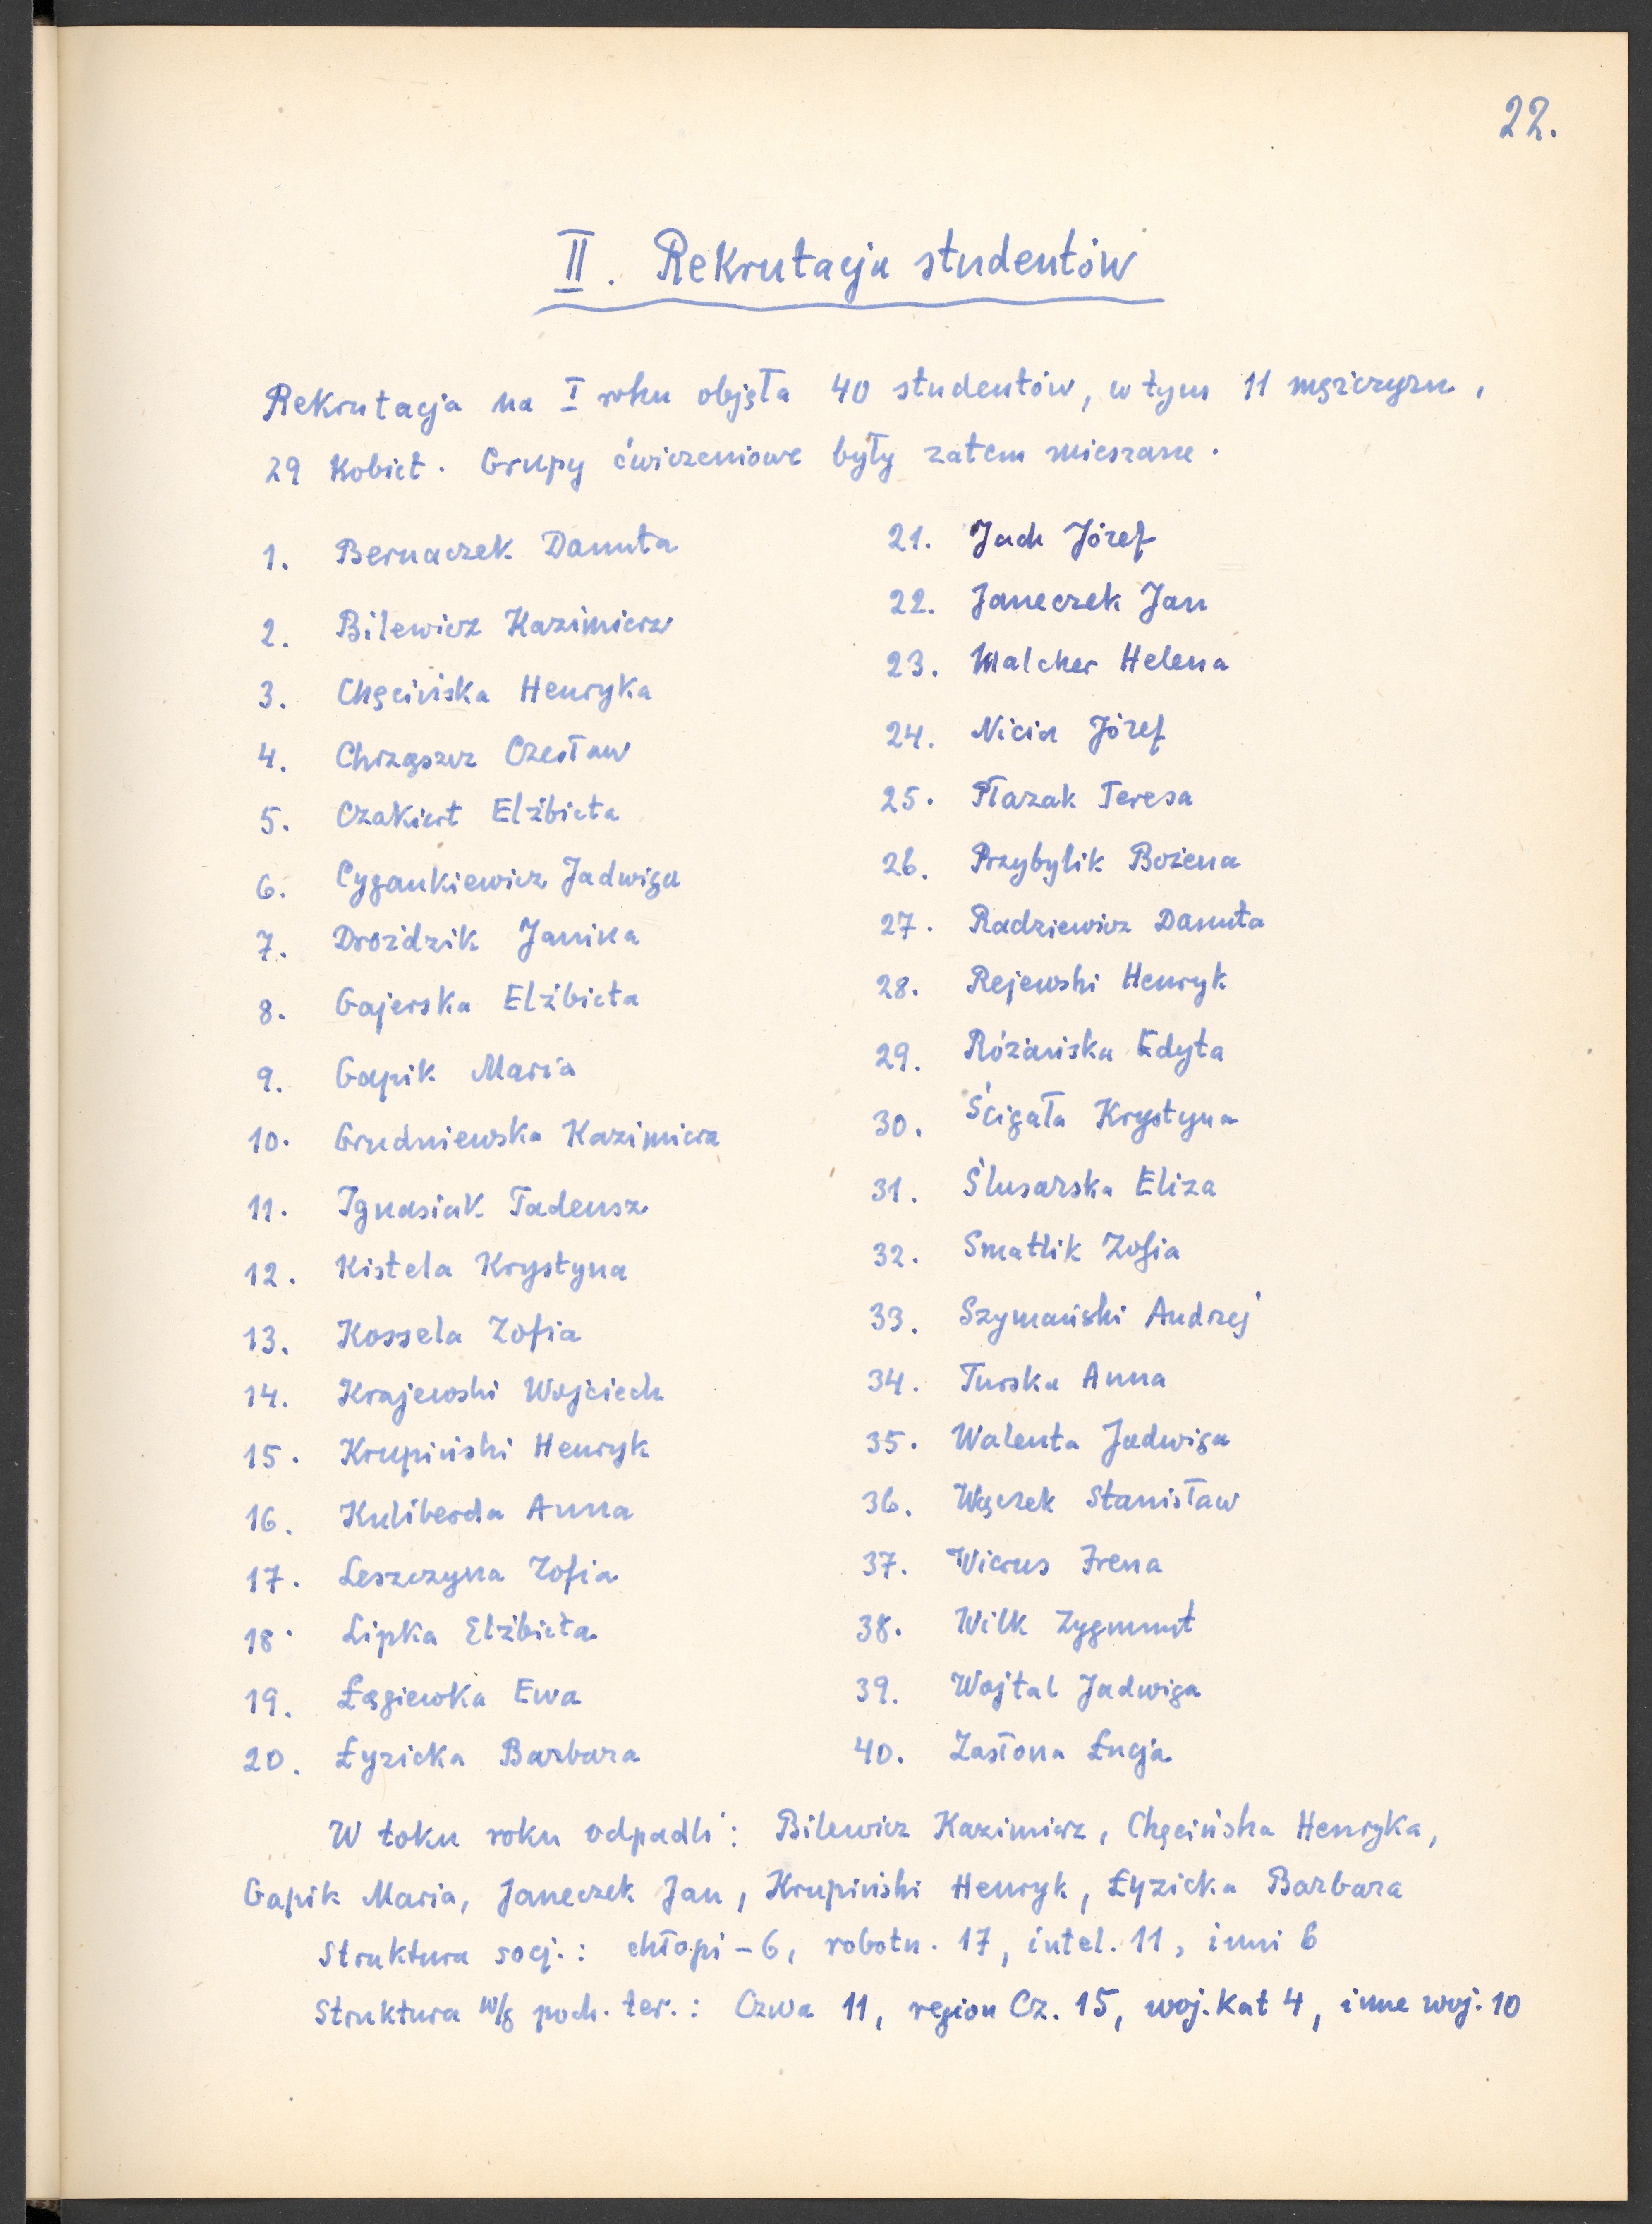 22.
II. Rekrutacja studentów
Rekrutacja na I roku objęła 40 studentów, w tym 11 mężczyzn,
29 kobiet. Grupy ćwiczeniowe były zatem mieszane.
1. Bernaczek Danuta
2. Bilewicz Kazimierz
3. Chęcińska Henryka
4. Chrząszcz Czesław
5. Czakiert Elżbieta
6. Cygankiewicz Jadwiga
7. Droździk Janina
8. Gajerska Elżbieta
9. Gapik Maria
10. Grudniewska Kazimiera
11. Ignasiak Tadeusz
12. Kistela Krystyna
13. Kossela Zofia
14. Krajewski Wojciech
15. Krupiński Henryk
16. Kuliberda Anna
17. Leszczyna Zofia
18. Lipka Elżbieta
19. Łągiewka Ewa
20. Łyzicka Barbara
21. Jach Józef
22. Janeczek Jan
23. Malcher Helena
24. Nicia Józef
25. Płazak Teresa
26. Przybylik Bożena
27. Radziewicz Danuta
28. Rejewski Henryk
29. Różańska Edyta
30. Ścigała Krystyna
31. Ślusarska Eliza
32. Smatlik Zofia
33. Szymański Andrzej
34. Turska Anna
35. Walenta Jadwiga
36. Wączek Stanisław
37. Wierus Irena
38. Wilk Zygmunt
39. Wojtal Jadwiga
40. Zasłona Łucja
W toku roku odpadli: Bilewicz Kazimierz, Chęcińska Henryka,
Gapik Maria, Janeczek Jan, Krupiński Henryk, Łyzicka Barbara
Struktura socj.: chłopi - 6, robotn. 17, intel. 11, inni 6
Struktura w/g poch. ter.: Czwa 11, region Cz. 15, woj. Kat 4, inne woj. 10